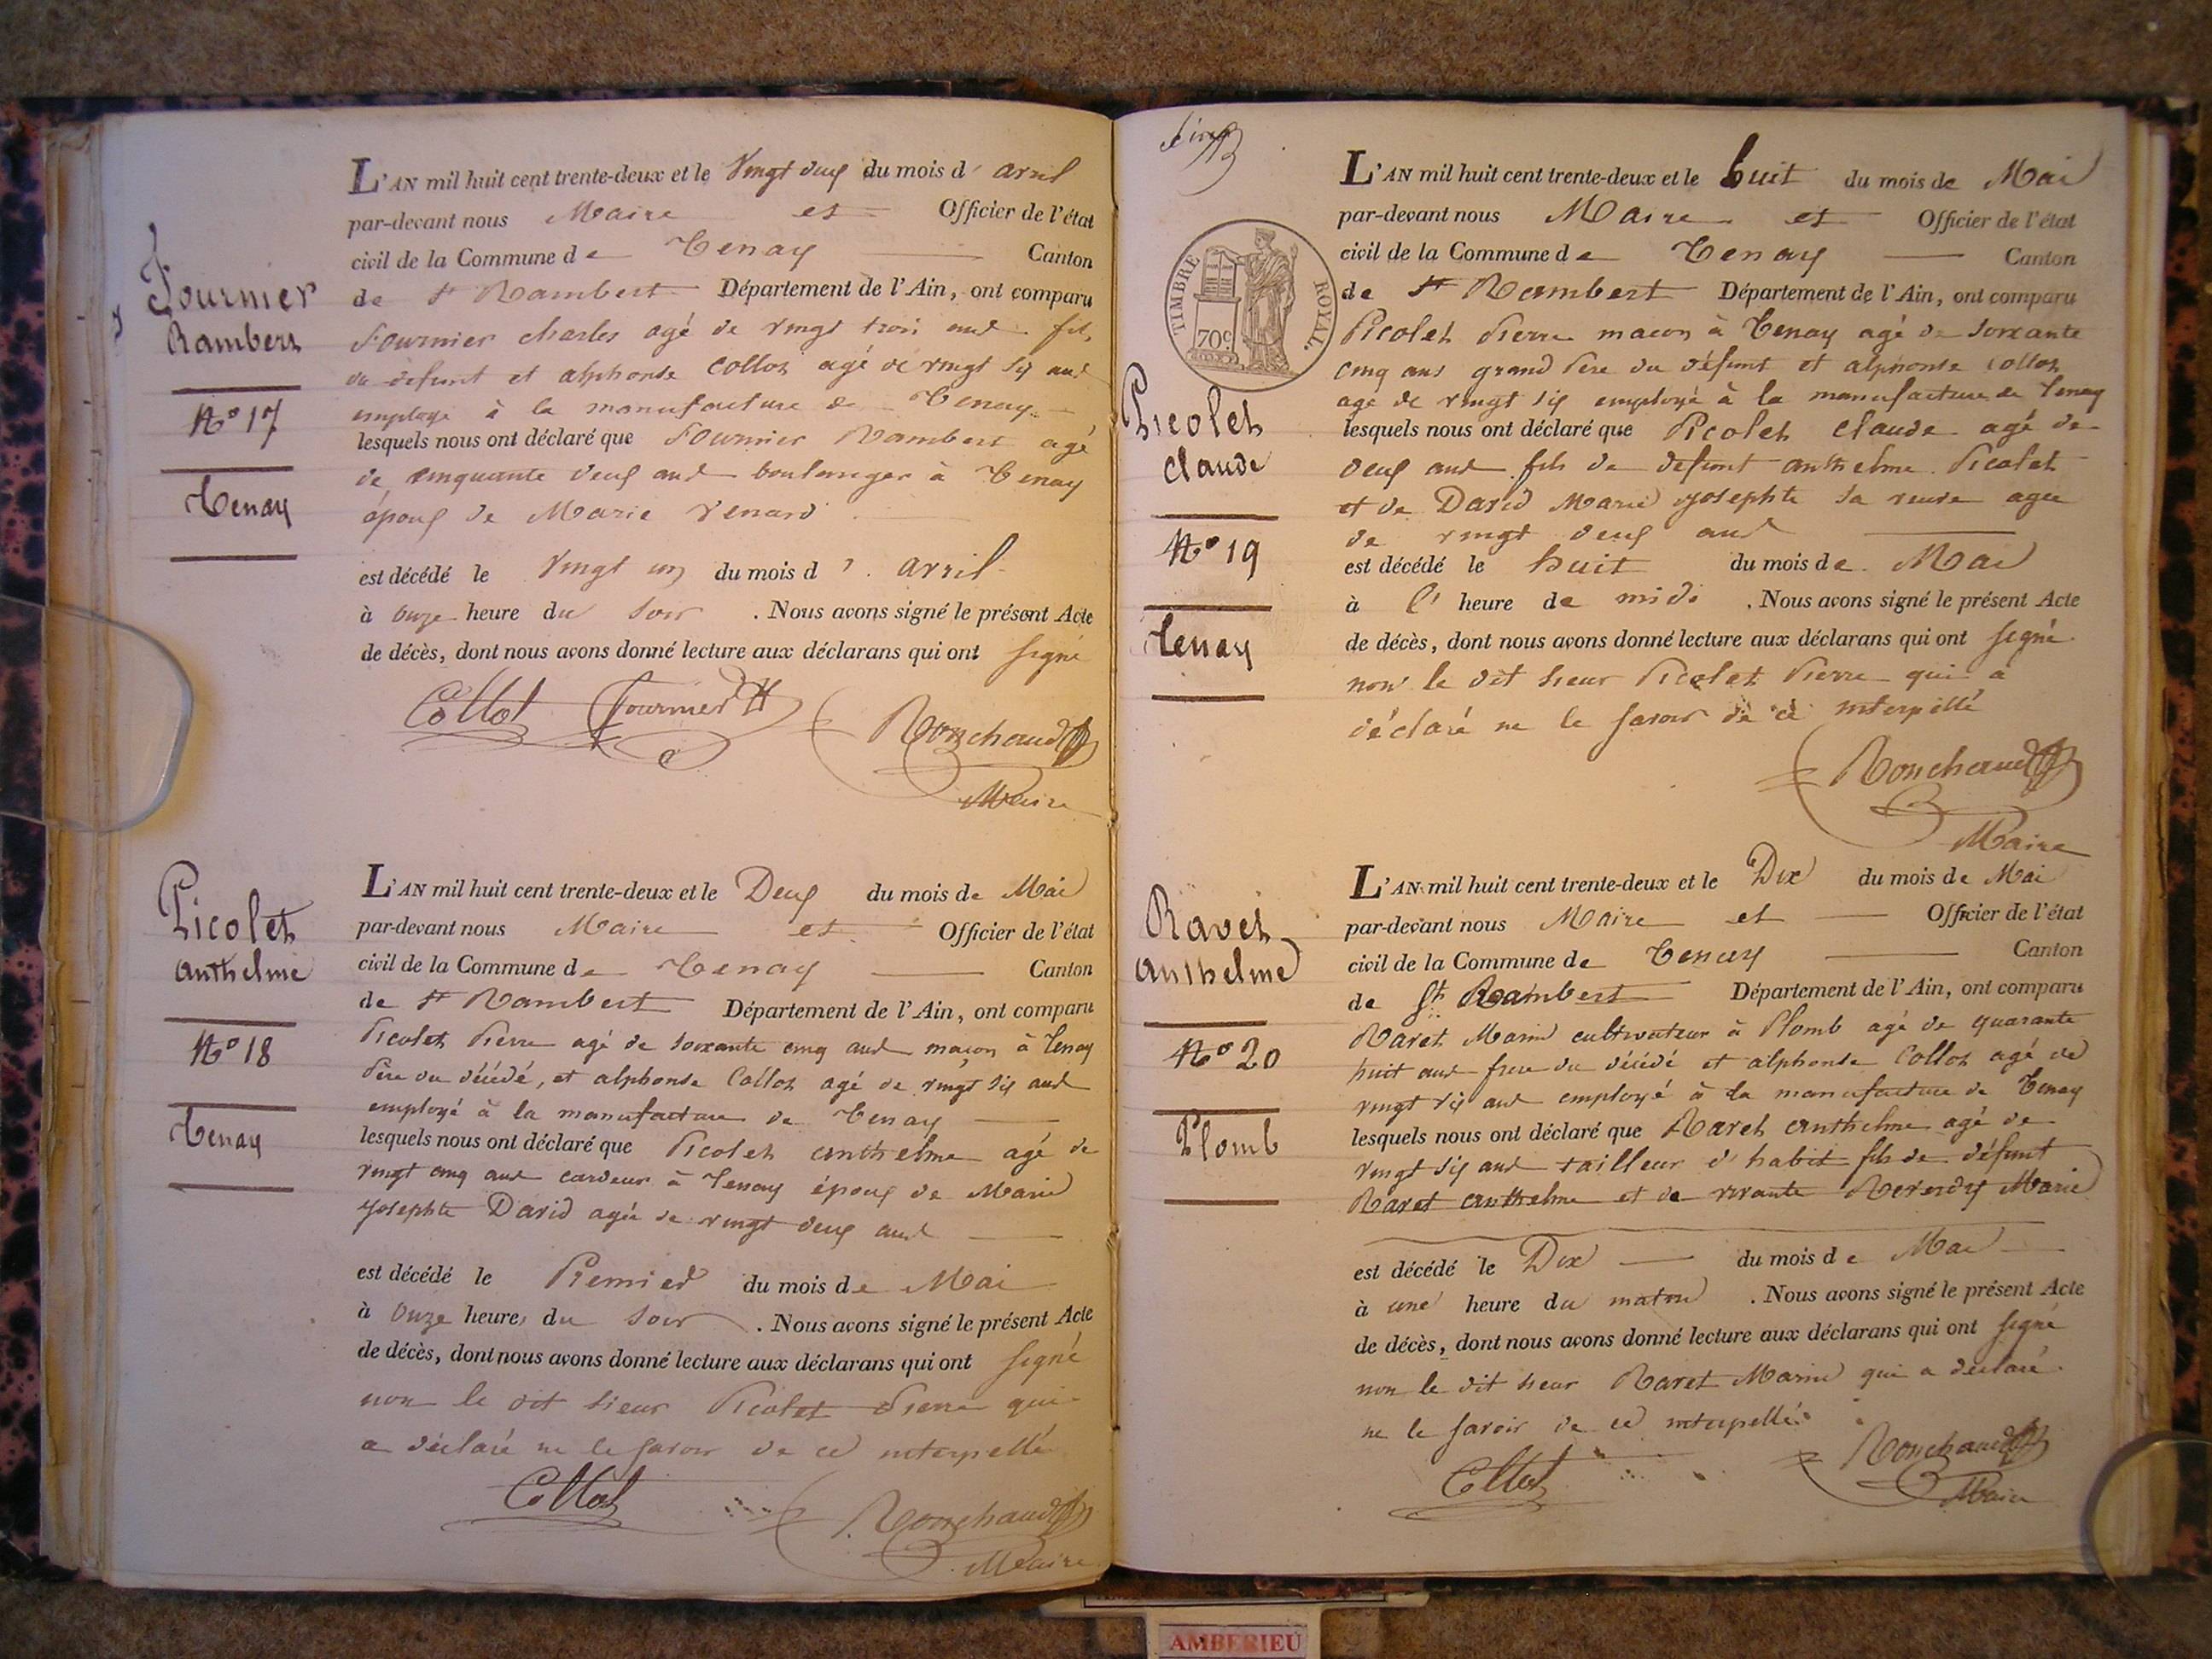 L'AN mil huit cent trente-deux et le Vingt deux du mois d' avril
par-devant nous Maire et Officier de l'état
civil de la Commune de Tenay Canton
de St Rambert Département de l'Ain, ont comparu
fournier charles agé de vingt trois ans fils
du défunt et alphonse Collot agé de vingt six ans
employé à la manufacture de Tenay
lesquels nous ont déclaré que fournier Rambert agé
de cinquante deux ans boulanger à Tenay
époux de Marie Venard
est décédé le vingt un du mois d' avril
à onze heure du soir . Nous avons signé le présent Acte
de décès, dont nous avons donné lecture aux déclarans qui ont signé
Collot fournier
Ronchaud
Maire
Fournier
Rambert
No 17
Tenay
L'AN mil huit cent trente-deux et le Deux du mois de Mai
par-devant nous Maire et Officier de l'état
civil de la Commune de Tenay Canton
de St Rambert Département de l'Ain, ont comparu
Picolet Pierre agé de soixante cinq ans maçon à Tenay
Père du décédé, et alphonse Collot agé de vingt six ans
employé à la manufacture de Tenay
lesquels nous ont déclaré que Picolet anthelme agé de
vingt cinq ans cardeur à Tenay époux de Marie
Josephte David agée de vingt deux ans
est décédé le Premier du mois de Mai
à Onze heure, du soir . Nous avons signé le présent Acte
de décès, dont nous avons donné lecture aux déclarans qui ont signé
non le dit sieur Picolet Pierre qui
a déclaré ne le savoir de ce interpellé
Collot
Ronchaud
Maire
Picolet
anthelme
No 18
Tenay
TIMBRE ROYAL.
70c.
L'AN mil huit cent trente-deux et le huit du mois de Mai
par-devant nous Maire et Officier de l'état
civil de la Commune de Tenay Canton
de St Rambert Département de l'Ain, ont comparu
Picolet Pierre maçon à Tenay agé de soixante
cinq ans grand Père du défunt et alphonse Collot
agé de vingt six employé à la manufacture de Tenay
lesquels nous ont déclaré que Picolet Claude agé de
deux ans fils de defunt anthelme Picolet
et de David Marie Josephte sa veuve agée
de vingt deux ans
est décédé le huit du mois de Mai
à l' heure de midi . Nous avons signé le présent Acte
de décès, dont nous avons donné lecture aux déclarans qui ont signé
non le dit sieur Picolet Pierre qui a
déclaré ne le savoir de ce interpellé
Ronchaud
Maire
Picolet
Claude
No 19
Tenay
L'AN mil huit cent trente-deux et le Dix du mois de Mai
par-devant nous Maire et Officier de l'état
civil de la Commune de Tenay Canton
de St Rambert Département de l'Ain, ont comparu
Ravet Marin cultivateur à Plomb agé de quarante
huit ans frere du décédé et alphonse Collot agé de
vingt six ans employé à la manufacture de Tenay
lesquels nous ont déclaré que Ravet anthelme agé de
vingt six ans tailleur d'habit fils de défunt
Ravet anthelme et de vivante Marie
est décédé le Dix du mois de Mai
à une heure du matin . Nous avons signé le présent Acte
de décès, dont nous avons donné lecture aux déclarans qui ont signé
non le dit sieur Ravet Marin qui a déclaré
ne le savoir de ce interpellé
Collot
Ronchaud
Maire
Ravet
anthelme
No 20
Plomb
AMBERIEU